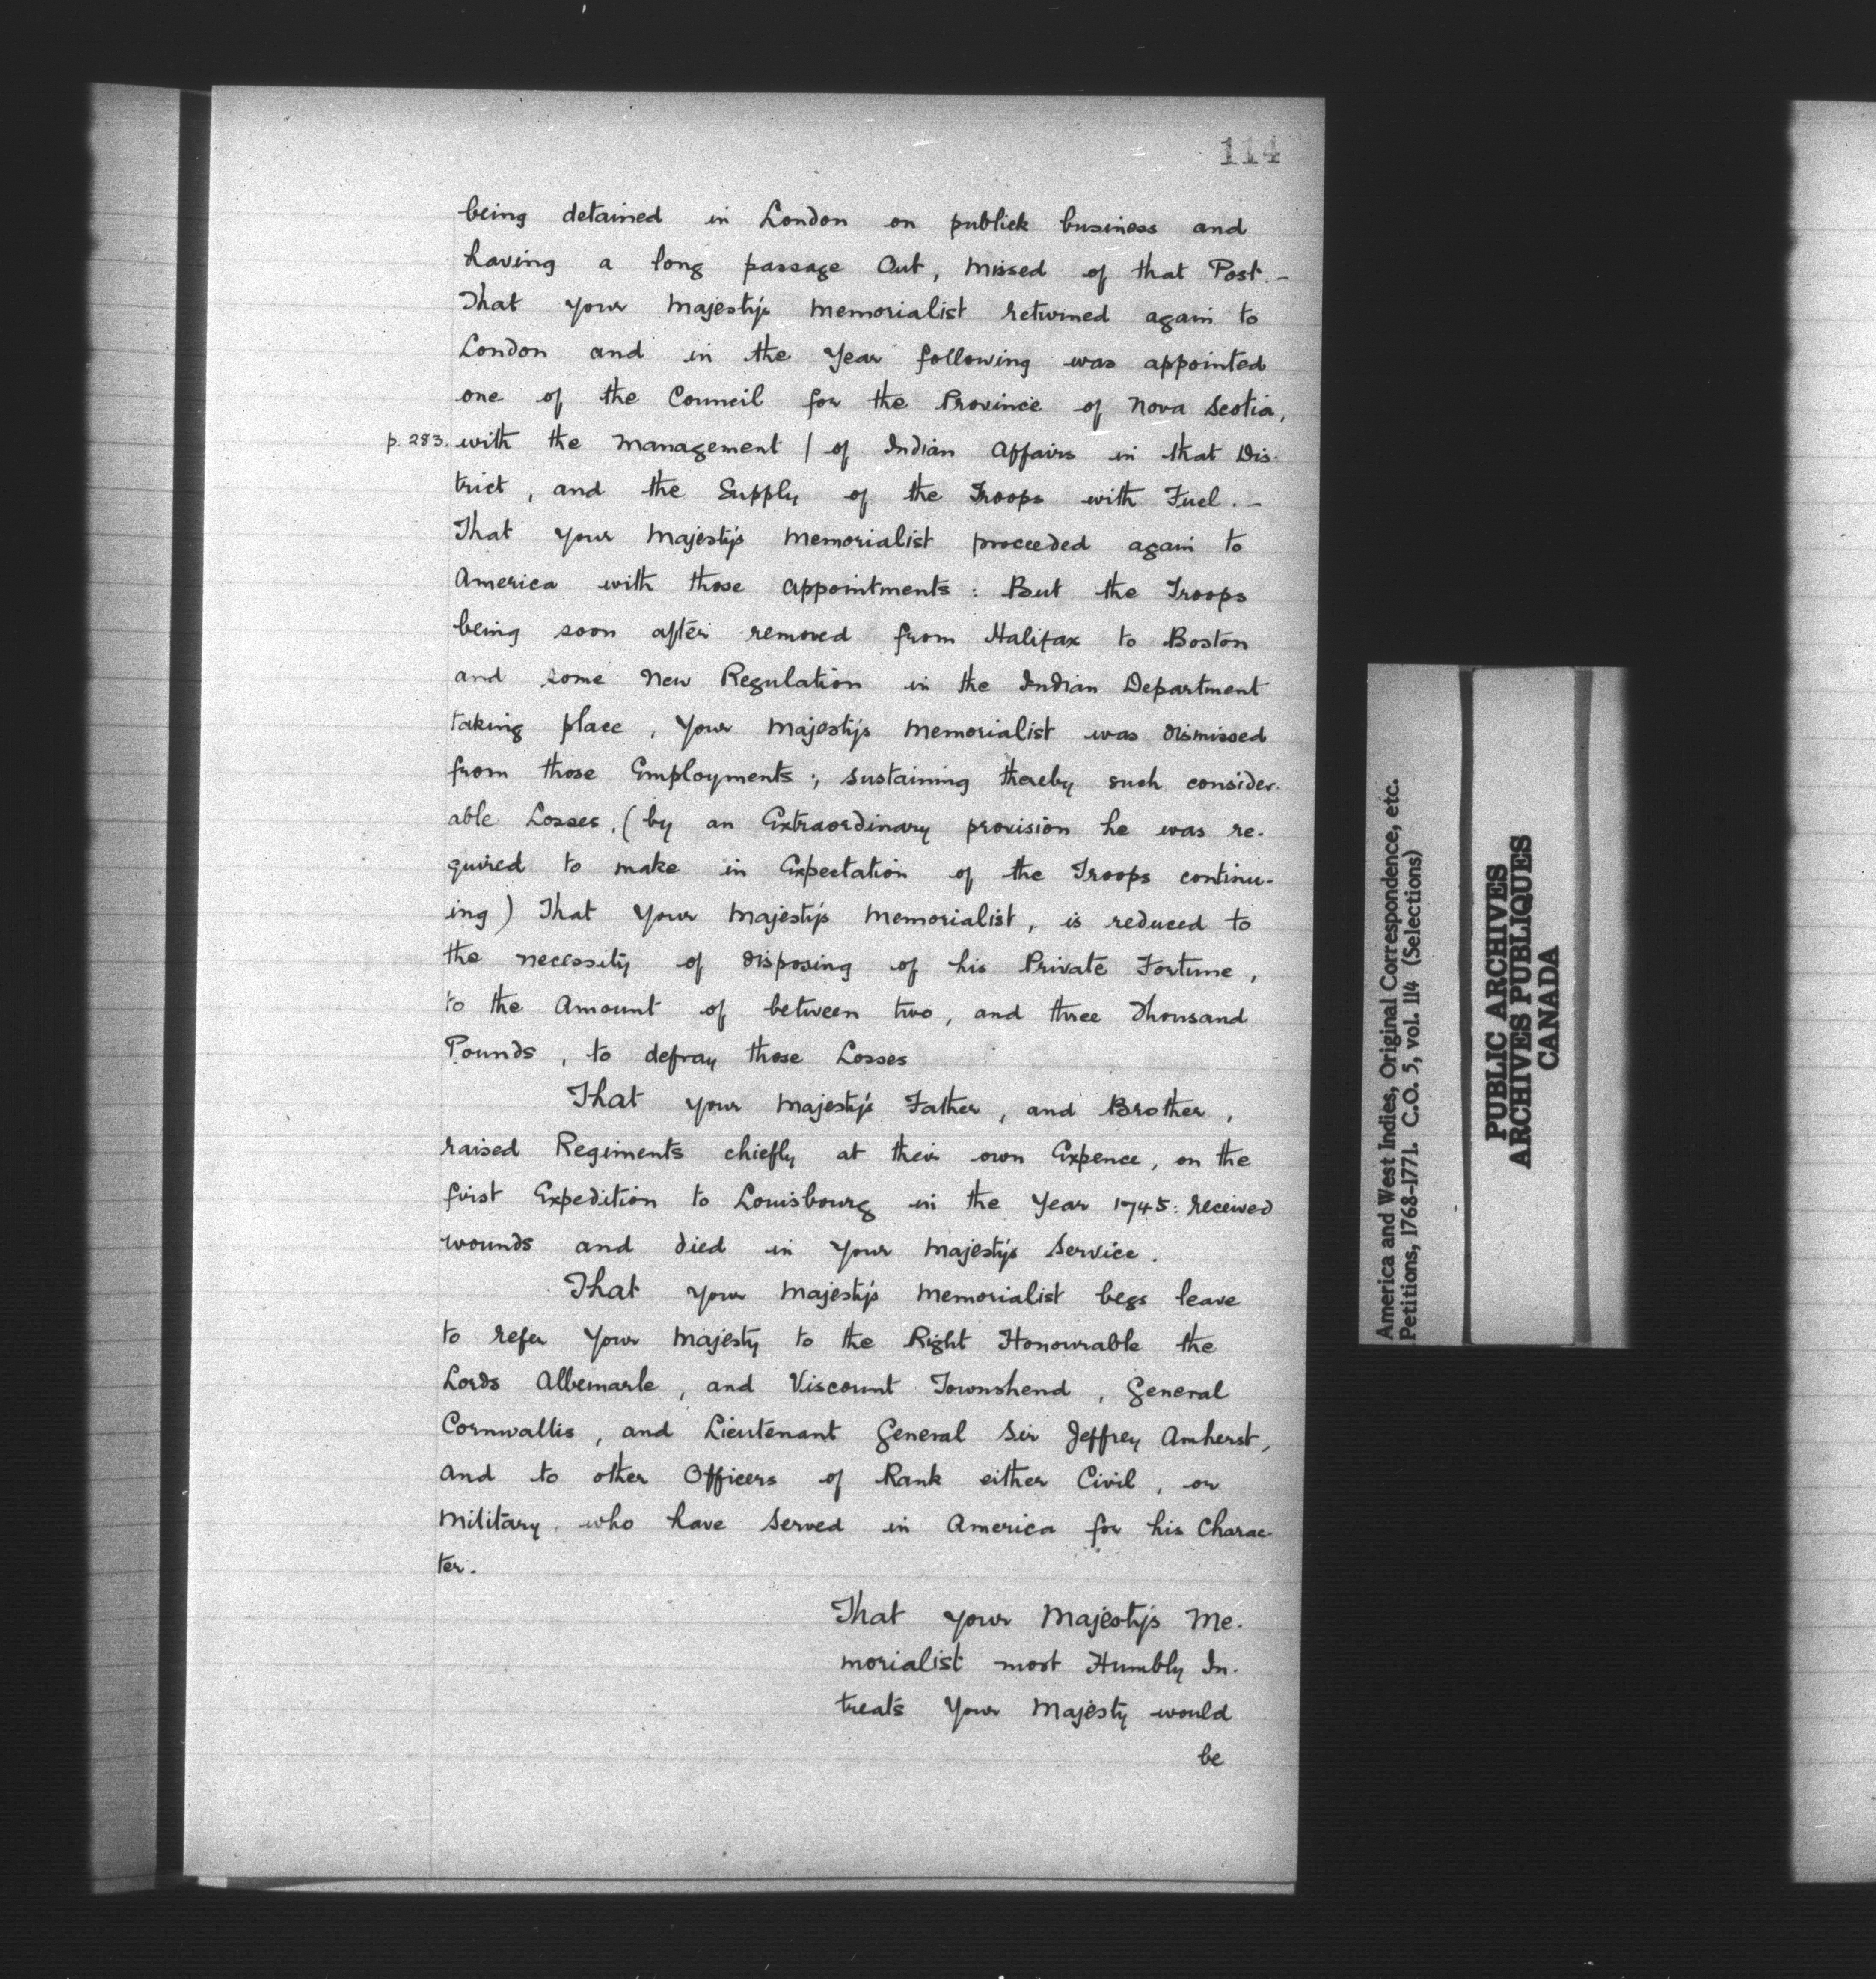 114
being detained in London on publick business and
having a long passage Out, missed of that Post. -
That your Majesty's Memorialist returned again to
London and in the Year following was appointed
one of the Council for the Province of Nova Scotia,
p. 283. with the Management / of Indian Affairs in that Dis-
trict, and the Supply of the Troops with Fuel. -
That Your Majesty's Memorialist proceeded again to
America with those appointments: But the Troops
being soon after removed from Halifax to Boston
and some New Regulation in the Indian Department
taking place, Your Majesty's Memorialist was dismissed
from those Employments; sustaining thereby such consider-
able Losses, (by an Extraordinary provision he was re-
quired to make in Expectation of the Troops continu-
ing) That Your Majesty's Memorialist, is reduced to
the necessity of disposing of his Private Fortune,
to the Amount of between two, and three Thousand
Pounds, to defray those Losses
That your Majesty's Father, and Brother,
raised Regiments chiefly at their own Expence, on the
first Expedition to Louisbourg in the Year 1745: received
wounds and died in Your Majesty's Service.
That your Majesty's Memorialist begs leave
to refer Your Majesty to the Right Honourable the
Lords Albemarle, and Viscount Townshend, General
Cornwallis, and Lieutenant General Sir Jeffrey Amherst,
and to other Officers of Rank either Civil, or
Military, who have served in America for his Charac-
ter.
That your Majesty's Me-
morialist most Humbly In-
treats Your Majesty would
be
America and West Indies, Original Correspondence, etc.
Petitions, 1768-1771. C.O. 5, vol. 114 (Selections)
PUBLIC ARCHIVES
ARCHIVES PUBLIQUES
CANADA